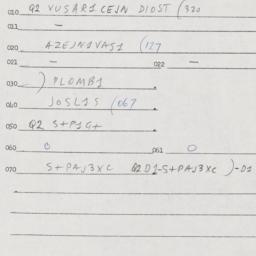 010 Q2 VUSAR1 CEJN DIOST (320
011 —
020 AZEJN1VAS1 (127
021 — 022 —
030 ) PLOMB1
040 JOSL1S (067
050 Q2 S+P1G+
060 0 061 0
070 S+PAJ3XC Q2D1-S+PAJ3XC )-D1